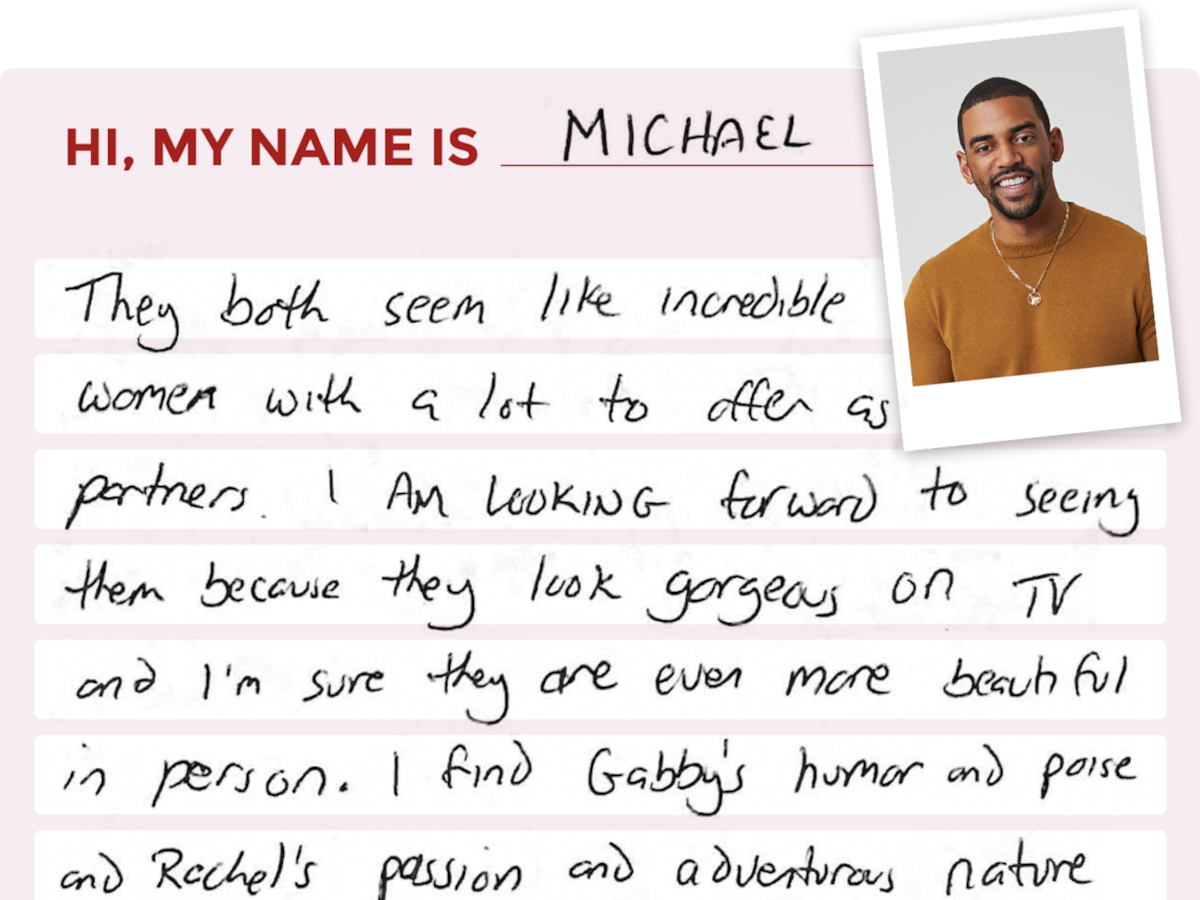 HI, MY NAME IS MICHAEL
They both seem like incredible
women with a lot to offer as
partners. I AM LOOKING forward to seeing
them because they look gorgeous on TV
and I'm sure they are even more beautiful
in person. I find Gabby's humor and poise
and Rachel's passion and adventurous nature